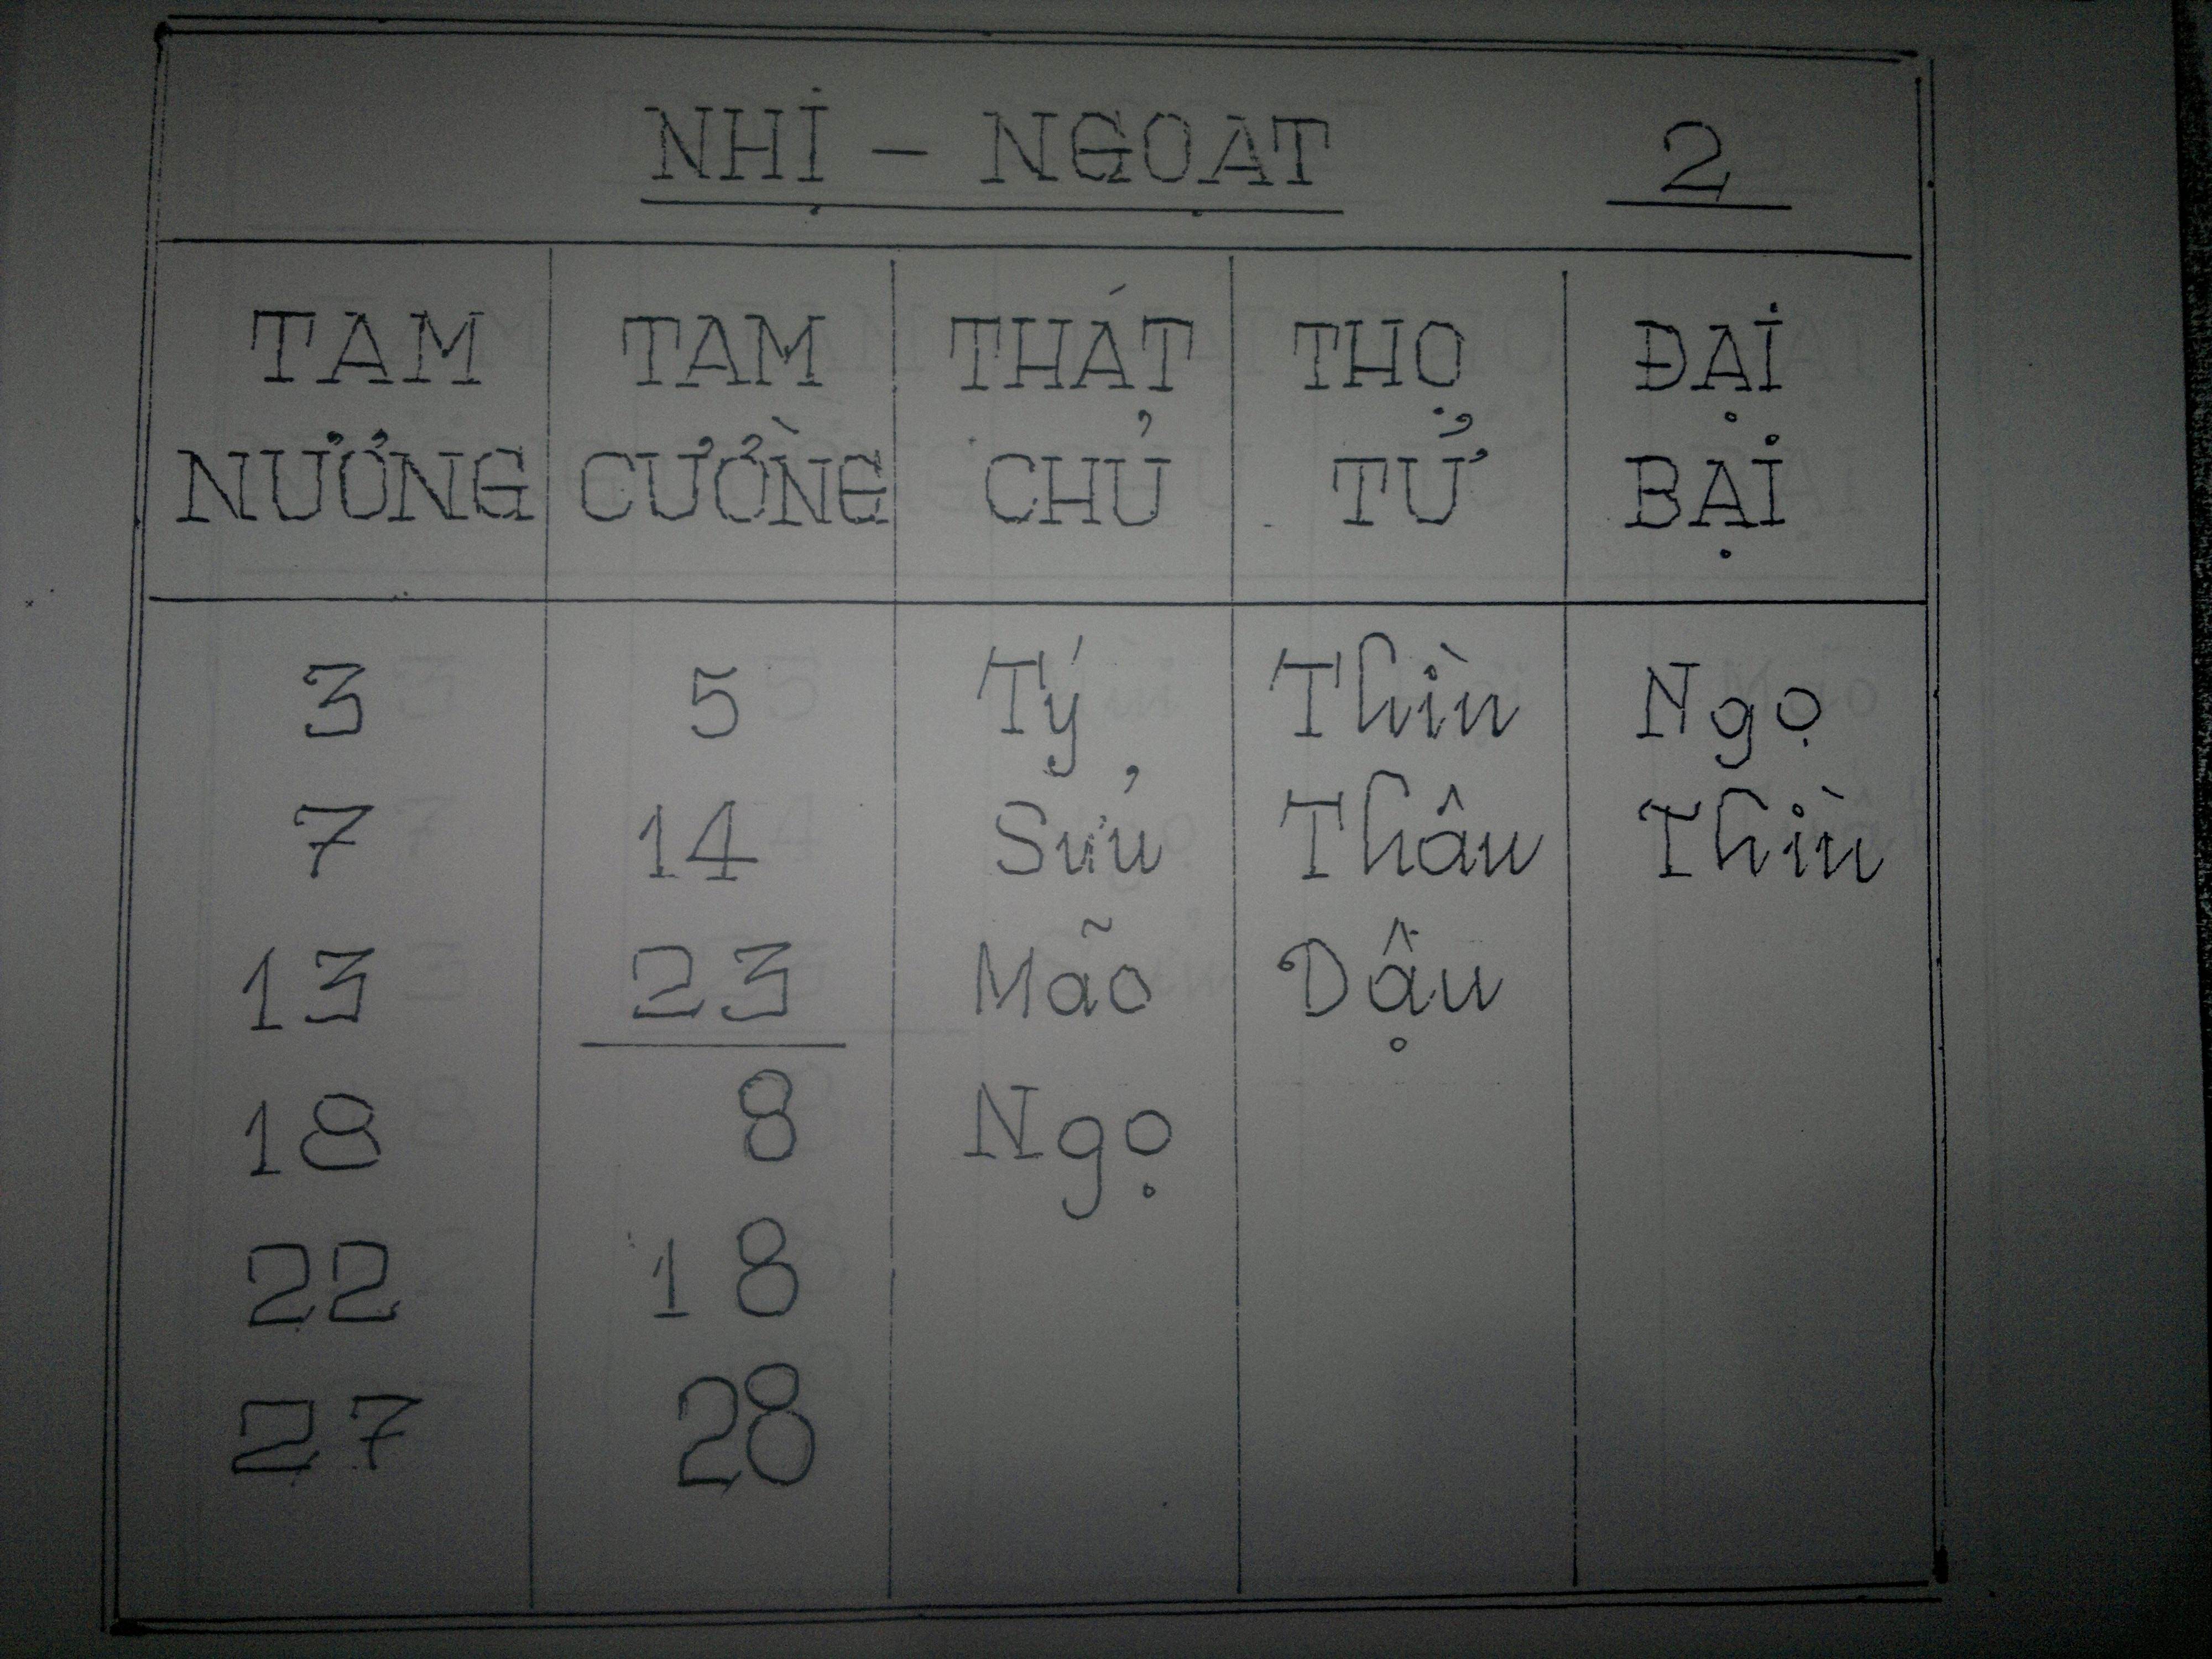 NHỊ - NGOẠT 2
TAM NƯƠNG TAM CƯỜNG THÁT CHỦ THỌ TỬ ĐẠI BẠI
3 5 Tý Thìn Ngọ
7 14 Sửu Thâu Thìn
13 23 Mão Dậu
18 8 Ngọ
22 18
27 28